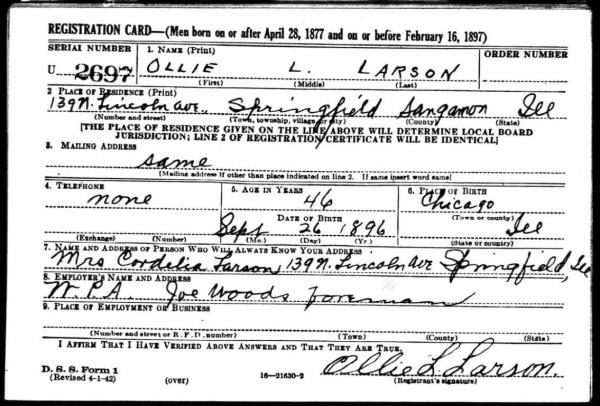 REGISTRATION CARD—(Men born on or after April 28, 1877 and on or before February 16, 1897)
SERIAL NUMBER 1. NAME (Print) ORDER NUMBER
U 2697 OLLIE L. LARSON
(First) (Middle) (Last)
2. PLACE OF RESIDENCE (Print)
139 N. Lincoln Ave., Springfield Sangamon Ill
(Number and street) (Town, township, village, or city) (County) (State)
[THE PLACE OF RESIDENCE GIVEN ON THE LINE ABOVE WILL DETERMINE LOCAL BOARD
JURISDICTION; LINE 2 OF REGISTRATION CERTIFICATE WILL BE IDENTICAL]
3. MAILING ADDRESS
same
[Mailing address if other than place indicated on line 2. If same insert word same]
4. TELEPHONE 5. AGE IN YEARS 6. PLACE OF BIRTH
none 46 Chicago
DATE OF BIRTH (Town or county)
Sept 26 1896 Ill
(Exchange) (Number) (Mo.) (Day) (Yr.) (State or country)
7. NAME AND ADDRESS OF PERSON WHO WILL ALWAYS KNOW YOUR ADDRESS
Mrs Cordelia Larson, 139 N. Lincoln Ave Springfield, Ill
8. EMPLOYER'S NAME AND ADDRESS
W.P.A. Joe Woods foreman
9. PLACE OF EMPLOYMENT OR BUSINESS
(Number and street or R. F. D. number) (Town) (County) (State)
I AFFIRM THAT I HAVE VERIFIED ABOVE ANSWERS AND THAT THEY ARE TRUE.
Ollie L Larson.
D. S. S. Form 1
(Revised 4-1-42) (over) 16—21630-2 (Registrant's signature)